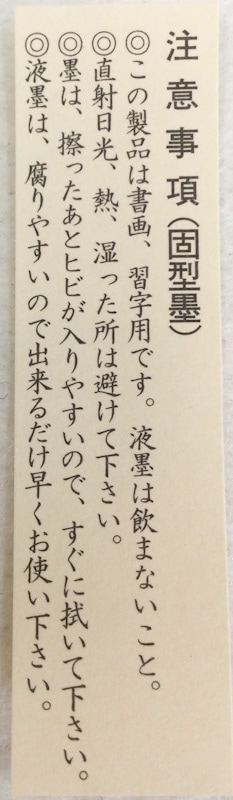 注意事項(固型墨)
◎この製品は書画、習字用です。液墨は飲まないこと。
◎直射日光、熱、湿った所は避けて下さい。
◎墨は、擦ったあとヒビが入りやすいので、すぐに拭いて下さい。
◎液墨は、腐りやすいので出来るだけ早くお使い下さい。